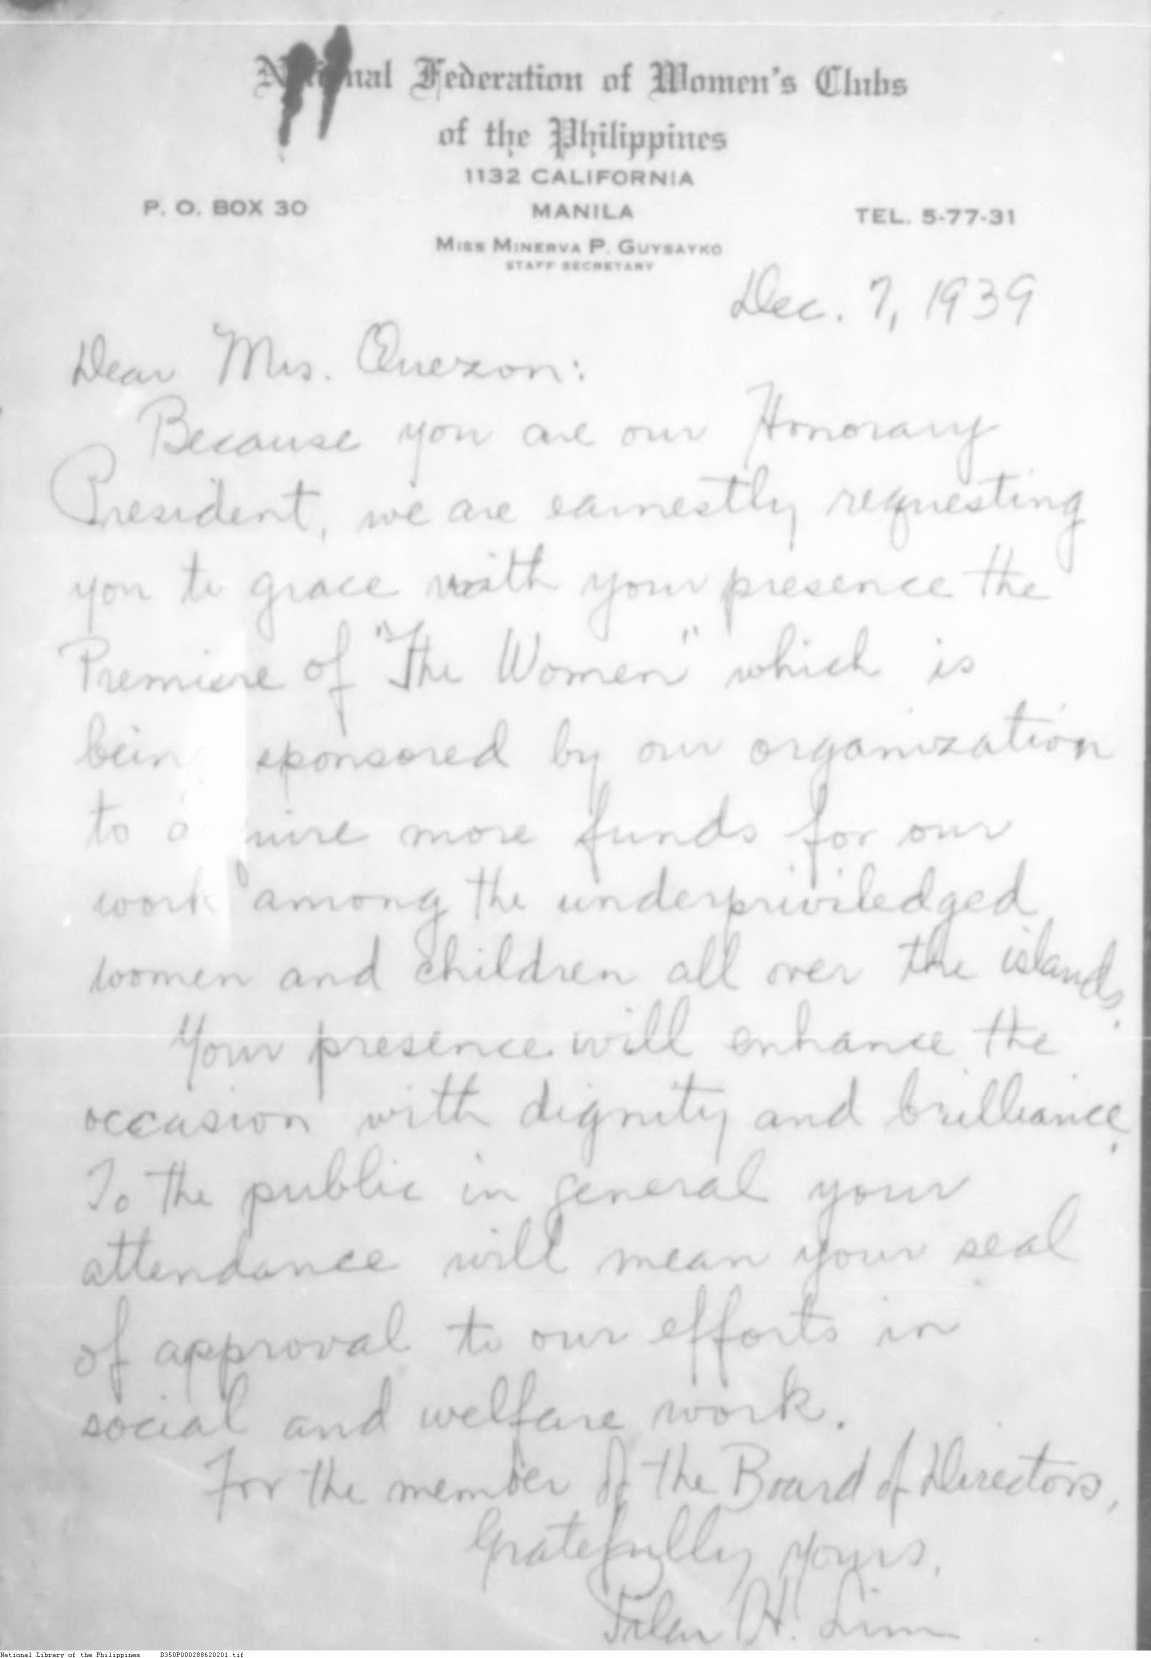 National Federation of Women's Clubs
of the Philippines
1132 CALIFORNIA
P. O. BOX 30 MANILA TEL. 5-77-31
MISS MINERVA P. GUYSAYKO
STAFF SECRETARY
Dec. 7, 1939
Dear Mrs. Quezon:
Because you are our Honorary
President, we are earnestly requesting
you to grace with your presence the
Premiere of "The Women" which is
bein sponsored by our organization
to more funds for our
work among the underpriviledged
women and children all over the islands.
Your presence will enhance the
occasion with dignity and brilliance.
To the public in general your
attendance will mean your seal
of approval to our efforts in
social and welfare work.
For the member of the Board of Directors,
Gratefully yours,
H. Lim
National Library of the Philippines B350P000288620201.tif